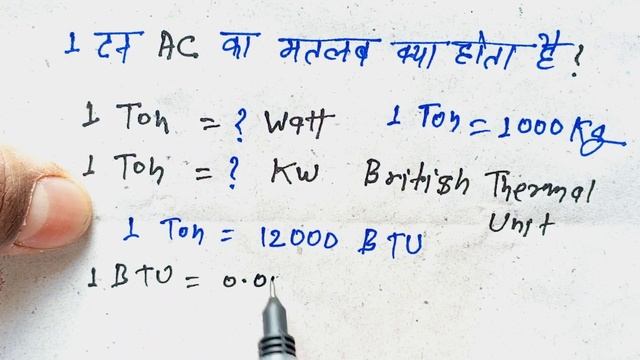 1 टन AC का मतलब क्या होता है?
1 Ton = ? Watt 1 Ton = 1000 Kg
1 Ton = ? KW British Thermal Unit
1 Ton = 12000 BTU
1 BTU = 0.0